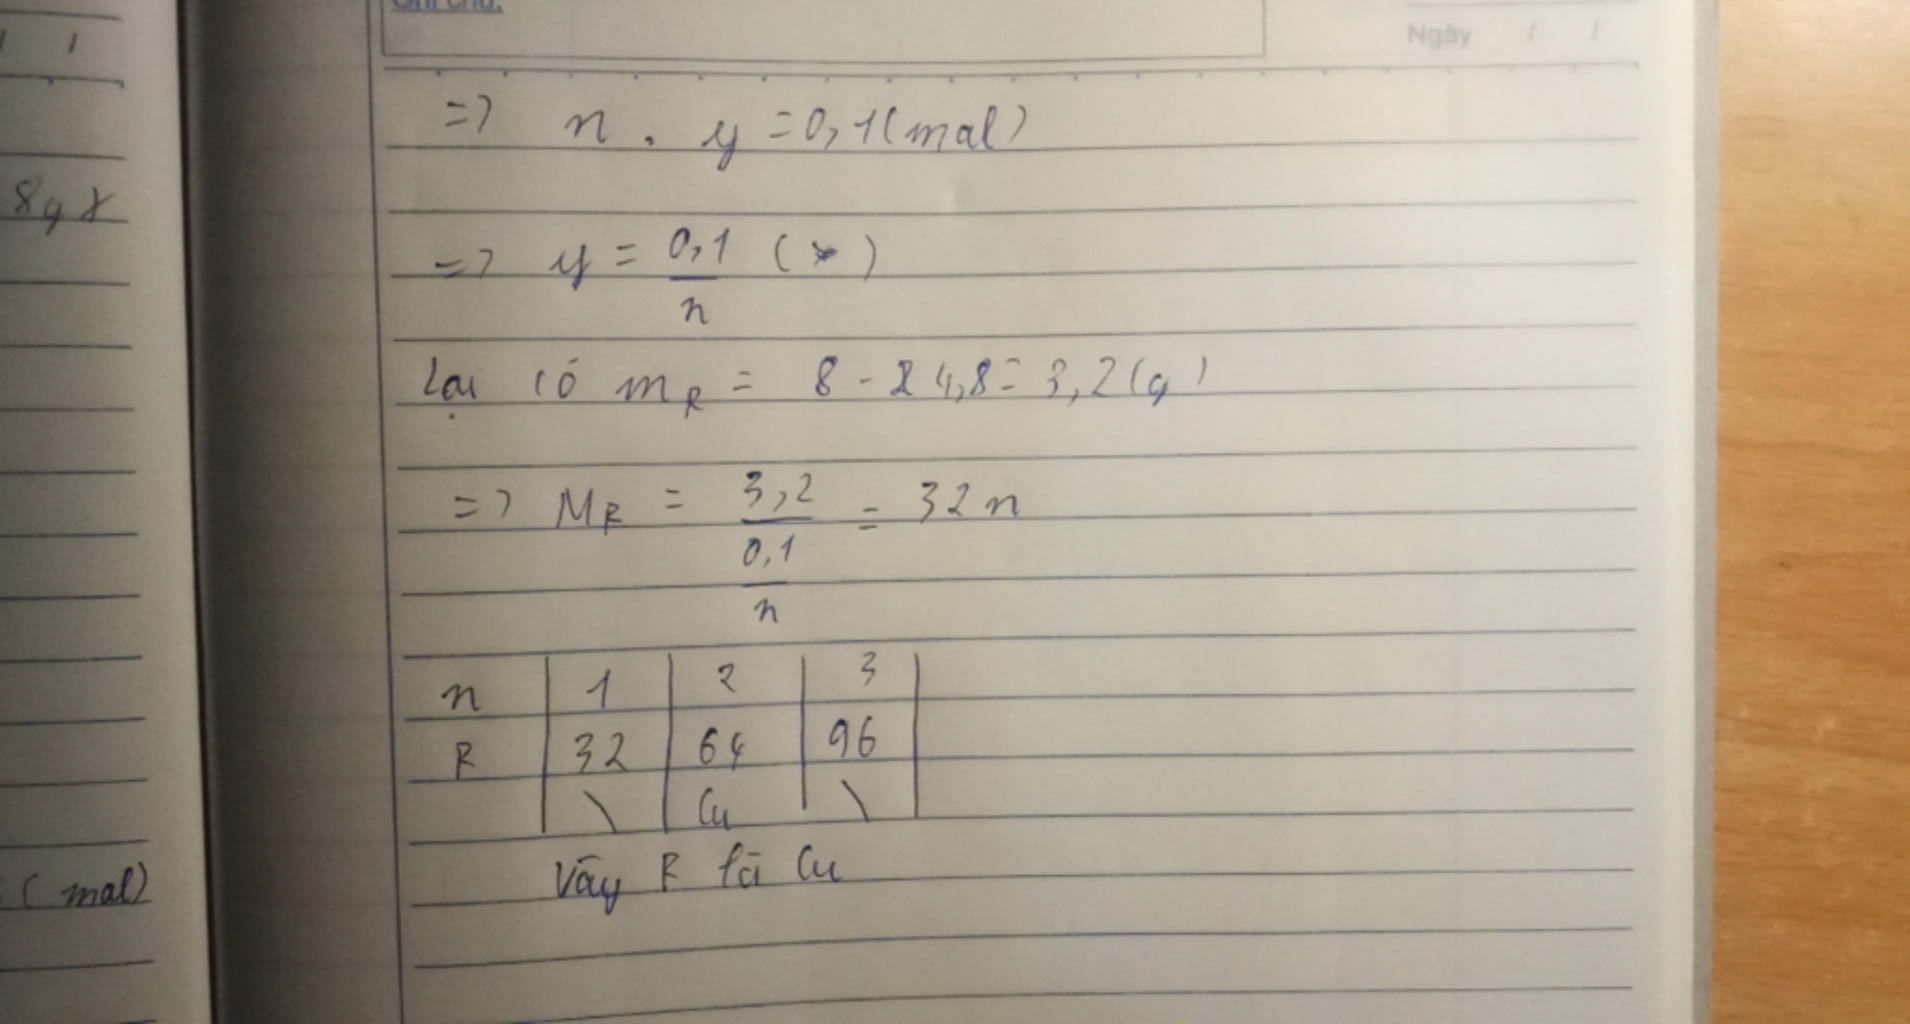 Ghi chú:
Ngày / /
=> n . y = 0,1 (mol)
=> y = 0,1/n (*)
Lại có m_R = 8 - 4,8 = 3,2 (g)
=> M_R = 3,2/(0,1/n) = 32n
n | 1 | 2 | 3
R | 32 | 64 | 96
\ | Cu | \
Vậy R là Cu
(mol)